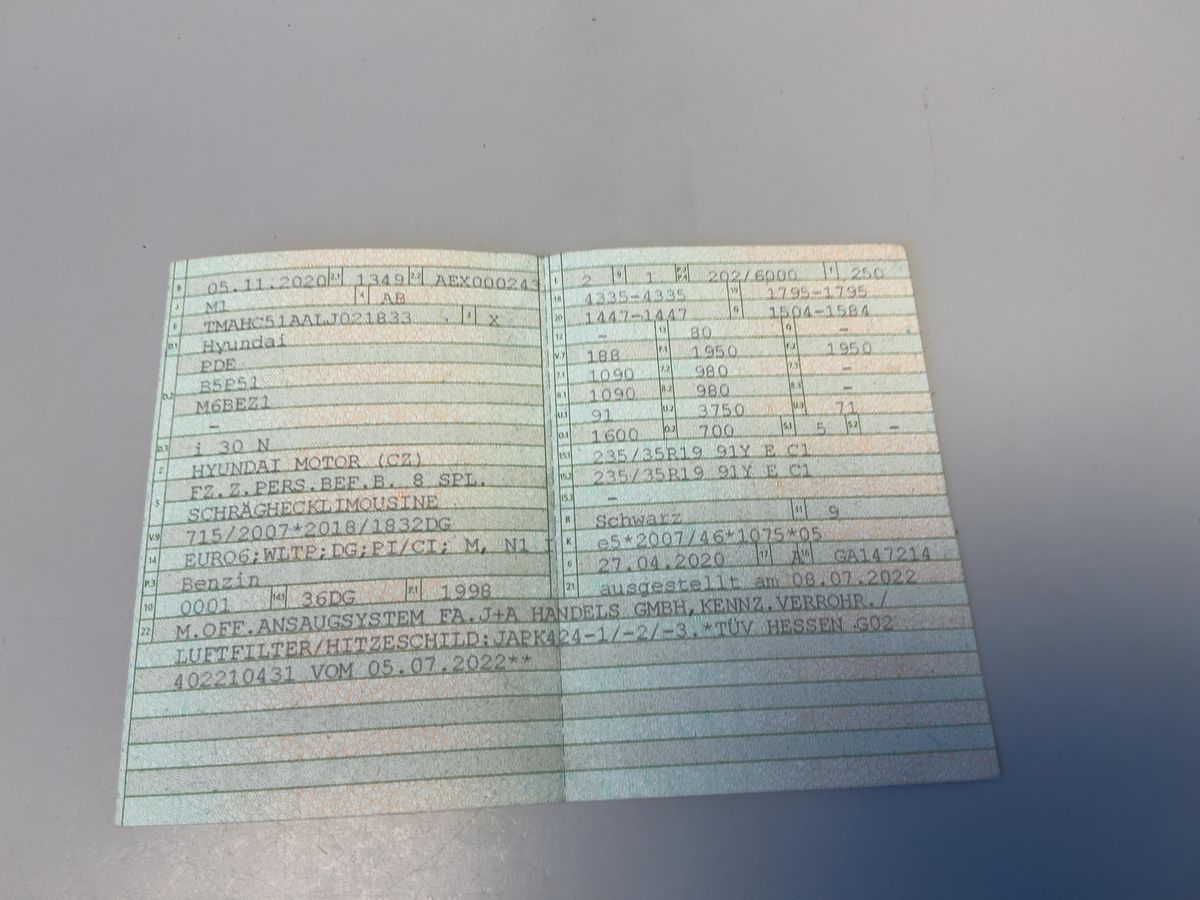 B 05.11.2020 2.1 1349 2.2 AEX000243
J M1 4 AB
E TMAHC51AALJ021833 3 X
D.1 Hyundai
D.2 PDE
B5P51
M6BEZ1
-
D.3 i 30 N
2 HYUNDAI MOTOR (CZ)
5 FZ.Z.PERS.BEF.B. 8 SPL.
SCHRÄGHECKLIMOUSINE
V.9 715/2007*2018/1832DG
14 EURO6;WLTP;DG;PI/CI; M, N1 I
P.3 Benzin
10 0001 14.1 36DG P.1 1998
L 2 9 1 P.2 P.4 202/6000 T 250
18 4335-4335 19 1795-1795
20 1447-1447 G 1504-1584
12 - 13 80 Q -
V.7 188 F.1 1950 F.2 1950
7.1 1090 7.2 980 7.3 -
8.1 1090 8.2 980 8.3 -
U.1 91 U.2 3750 U.3 71
O.1 1600 O.2 700 S.1 5 S.2 -
15.1 235/35R19 91Y E C1
15.2 235/35R19 91Y E C1
15.3 -
R Schwarz 11 9
K e5*2007/46*1075*05
6 27.04.2020 17 A 16 GA147214
21 ausgestellt am 08.07.2022
22 M.OFF.ANSAUGSYSTEM FA.J+A HANDELS GMBH,KENNZ.VERROHR./
LUFTFILTER/HITZESCHILD:JAPK424-1/-2/-3.*TÜV HESSEN G02
402210431 VOM 05.07.2022**